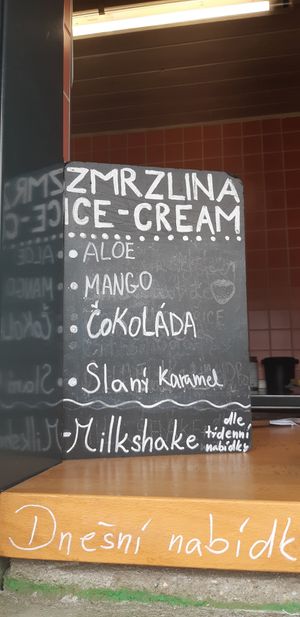 ZMRZLINA
ICE-CREAM
• ALOE
• MANGO
• ČOKOLÁDA
• Slaní Karamel
Milkshake dle
týdenní
nabídky
Dnešní nabídk